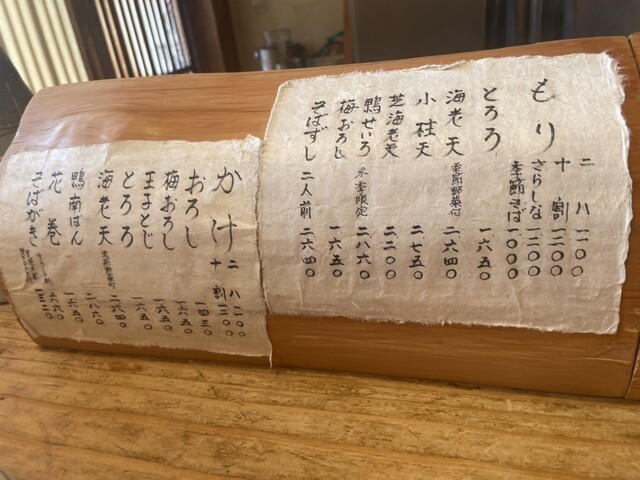 もり
二八 一一〇〇
十割 一三〇〇
さらしな 一二〇〇
季節そば 一〇〇〇
とろろ 一六五〇
海老天 季節野菜付 二六四〇
小柱天 二七五〇
芝海老天 二二〇〇
鴨せいろ 冬季限定 二八六〇
梅おろし 一六五〇
そばずし 二人前 二六四〇
かけ
二八 一一〇〇
十割 一三〇〇
おろし 一四三〇
梅おろし 一六五〇
玉子とじ 一六五〇
とろろ 一六五〇
海老天 季節野菜付 二六四〇
鴨南ばん 二八六〇
花巻 一六五〇
そばがき